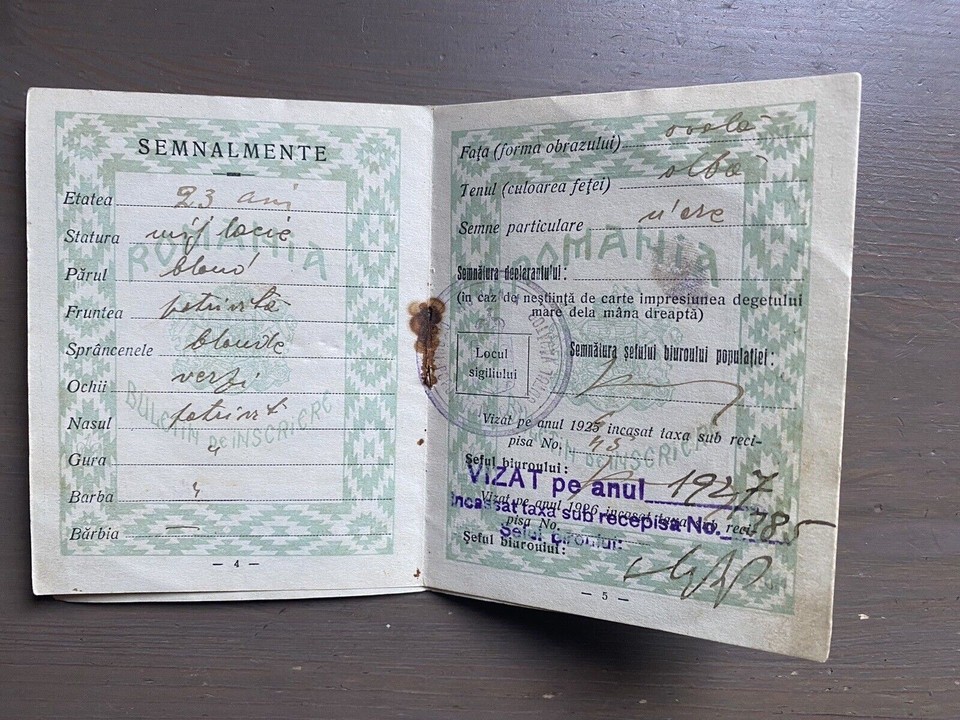 SEMNALMENTE
Etatea 23 ani
Statura mijlocie
Părul blond
Fruntea potrivită
Sprâncenele blonde
Ochii verzi
Nasul potrivit
Gura "
Barba "
Bărbia —
ROMÂNIA
BULETIN DE INSCRIERE
— 4 —
Fața (forma obrazului) ovală
Tenul (culoarea feței) albă
Semne particulare n'are
ROMÂNIA
Semnătura declarantului:
(în caz de neștiință de carte impresiunea degetului
mare dela mâna dreaptă)
Semnătura șefului biuroului populației:
Locul
sigiliului
Vizat pe anul 1925 incasat taxa sub reci-
pisa No. 45
BULETIN DE INSCRIERE
Șeful biuroului:
VIZAT pe anul 1927
Vizat pe anul 1926 incasat taxa sub reci-
incassat taxa sub recepisa No. 785
pisa No.
Șeful biroului:
Șeful biuroului:
— 5 —